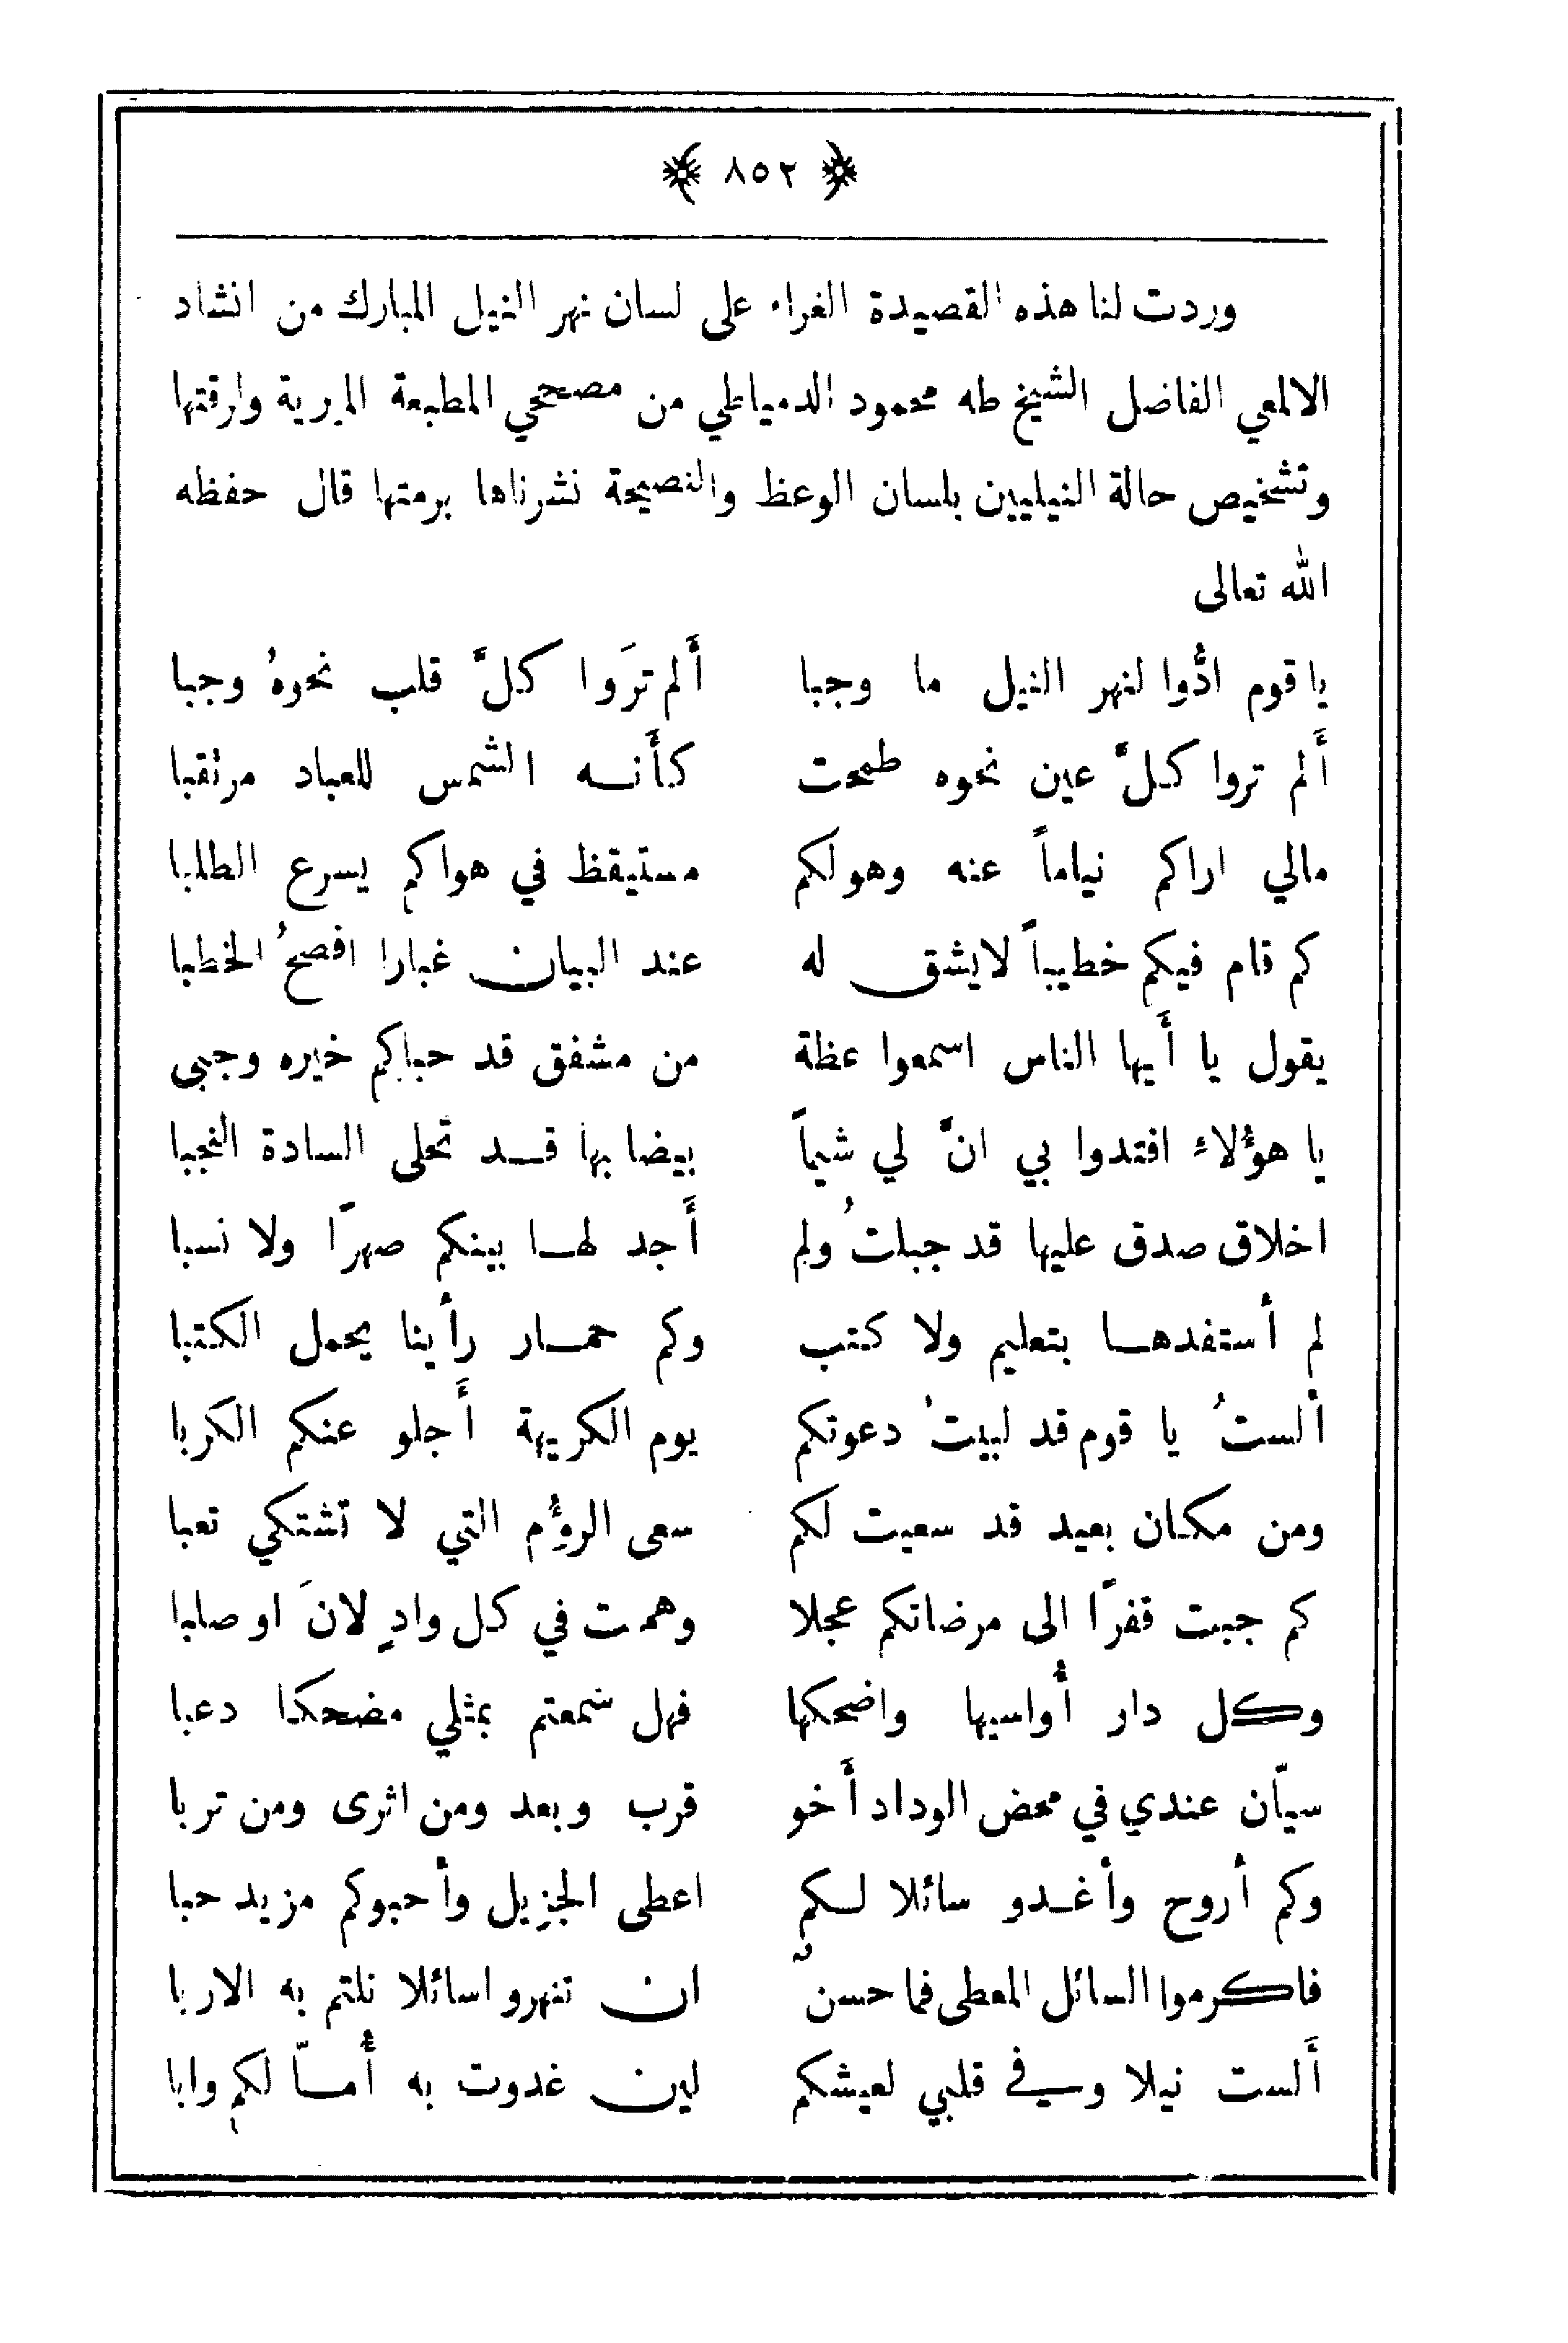 ﴿ ٨٥٢ ﴾
وردت لنا هذه القصيدة الغراء على لسان نهر النيل المبارك من انشاد
الالمعي الفاضل الشيخ طه محمود الدمياطي من مصححي المطبعة الميرية ولرقتها
وتشخيص حالة النيليين بلسان الوعظ والنصيحة نشرناها برمتها قال حفظه
الله تعالى
يا قوم ادُّوا لنهر النيل ما وجبا أَلم ترَوا كلَّ قلب نحوهُ وجبا
أَلم تروا كلَّ عين نحوه طمحت كأَنه الشمس للعباد مرتقبا
مالي اراكم نياماً عنه وهو لكم مستيقظ في هواكم يسرع الطلبا
كم قام فيكم خطيباً لا يشق له عند البيان غبارا افصحُ الخطبا
يقول يا أَيها الناس اسمعوا عظة من مشفق قد حباكم خيره وحبى
يا هؤلاء اقتدوا بي انَّ لي شيماً بيضا بها قد تحلى السادة النجبا
اخلاق صدق عليها قد جبلتُ ولم أَجد لها بينكم صهرًا ولا نسبا
لم أستفدها بتعليم ولا كتب وكم حمار رأينا يحمل الكتبا
ألستُ يا قوم قد لبيتُ دعوتكم يوم الكريهة أَجلو عنكم الكربا
ومن مكان بعيد قد سعيت لكم سعى الرؤُم التي لا تشتكي تعبا
كم جبت قفرًا الى مرضاتكم عجلا وهمت في كل وادٍ لانَ او صلبا
وكل دار أُواسيها واضحكها فهل سمعتم بمثلي مضحكا دعبا
سيّان عندي في محض الوداد أَخو قرب وبعد ومن اثرى ومن تربا
وكم أروح وأغدو سائلا لكم اعطى الجزيل وأحبوكم مزيد حبا
فاكرموا السائل المعطى فما حسنٌ ان تنهروا سائلا نلتم به الاربا
أَلست نيلا وفي قلبي لعيشكم لين غدوت به أُمّا لكم وابا